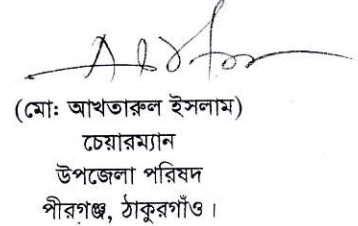 (মো: আখতারুল ইসলাম)
চেয়ারম্যান
উপজেলা পরিষদ
পীরগঞ্জ, ঠাকুরগাঁও।